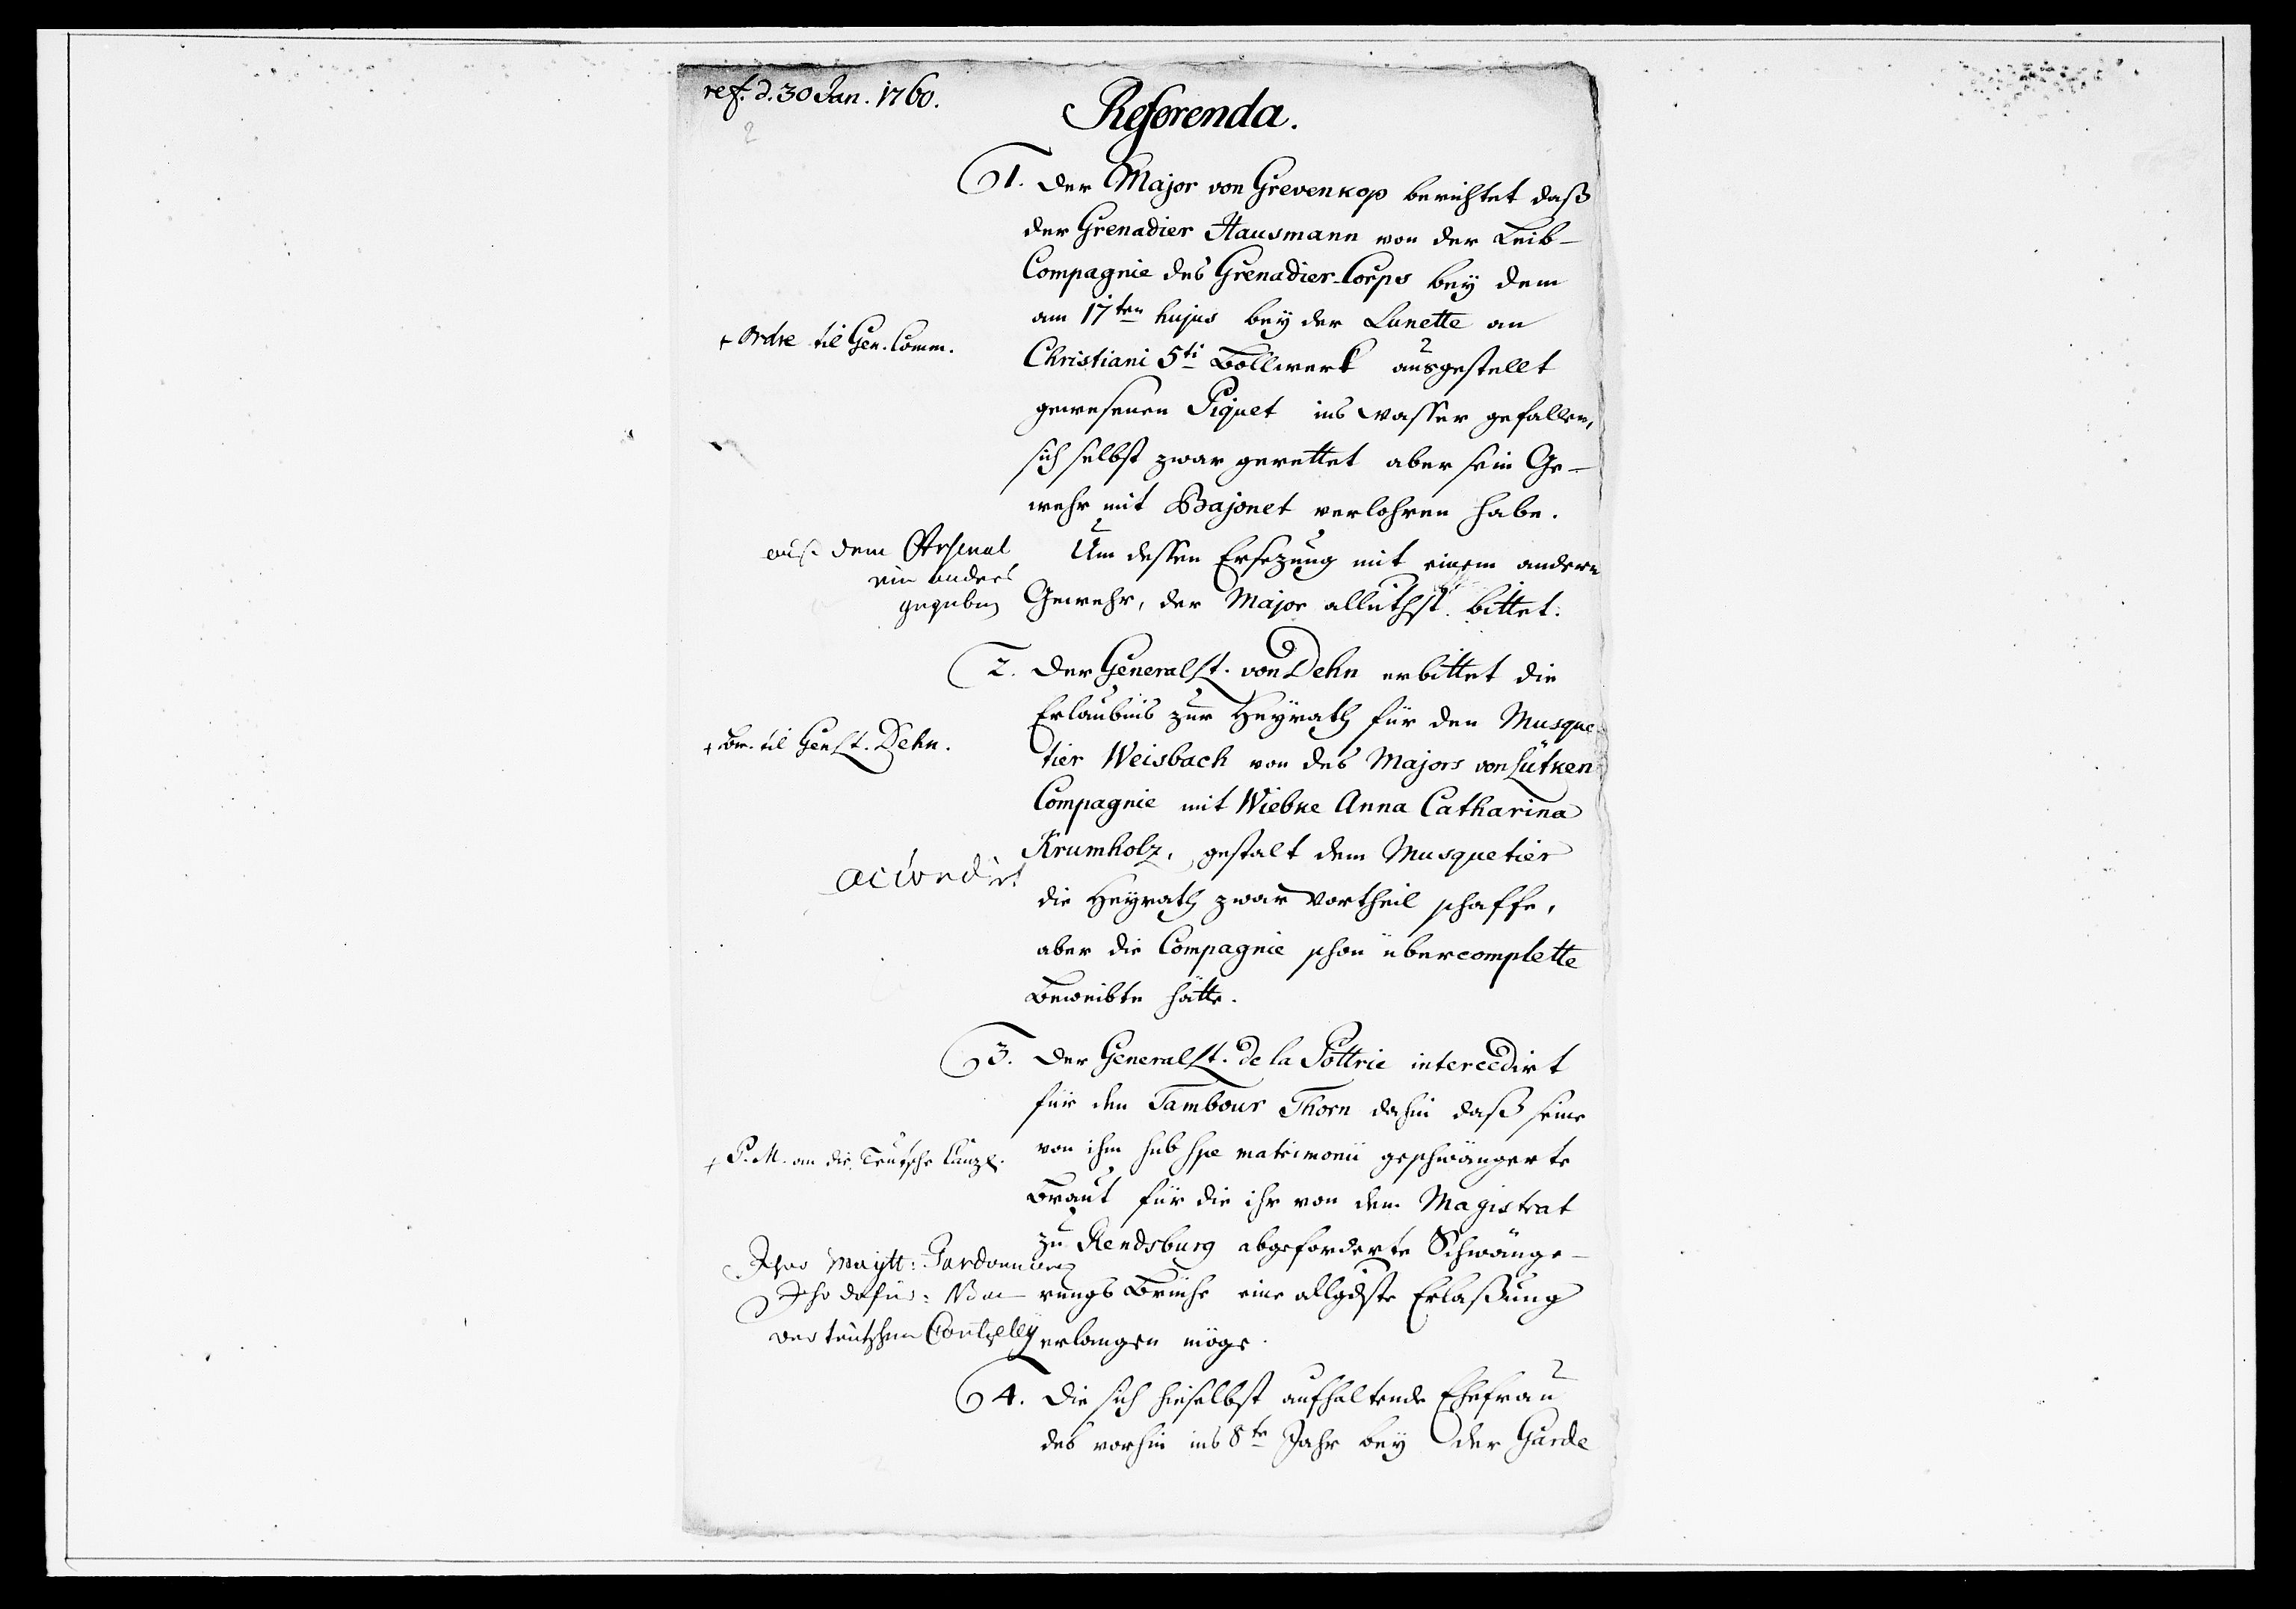 ref. d. 30 Jan. 1760.
Referenda.
1. Der Major von Grevenkop berichtet daß
der Grenadier Hausmann von der Leib-
Compagnie des Grenadier-Corps bey dem
am 17ten hujus bey der Lunette an
+ Ordre til Gen. Comm.
Christiani 5ti Bollwerk ausgestellt
gewesenen Piquet ins Wasser gefallen,
sich selbst zwar gerettet aber sein Ge-
wehr mit Bajonet verlohren habe.
aus dem Arsenal
ein anders
gegeben
Um dessen Ersezung mit einem andern
Gewehr, der Major allüthst. bittet.
2. Der General Lt. von Dehn erbittet die
Erlaubnis zur Heyrath für den Musque-
+ Br. til Gen Lt. Dehn.
tier Weisbach von des Majors von Lütken
Compagnie mit Wiebke Anna Catharina
Krumholz, gestalt dem Musquetier
accordirt
die Heyrath zwar Vortheil schaffe,
aber die Compagnie schon übercomplette
Beweibte hätte.
3. Der General Lt. de la Pottrie intercedirt
für den Tambour Thorn dahin daß seine
+ P. M. an die Teutsche Canzl.
von ihm sub spe matrimonii geschwängerte
Braut für die ihr von dem Magistrat
zu Rendsburg abgeforderte Schwänge-
Ihro Maytt: Pardonniren
Ihr dafür:
rungs Brüche eine allgdste Erlaßung
der teutschen Cantzelley
erlangen möge.
4. Die sich hieselbst aufhaltende Ehefrau
des vorhin ins 8te Jahr bey der Garde